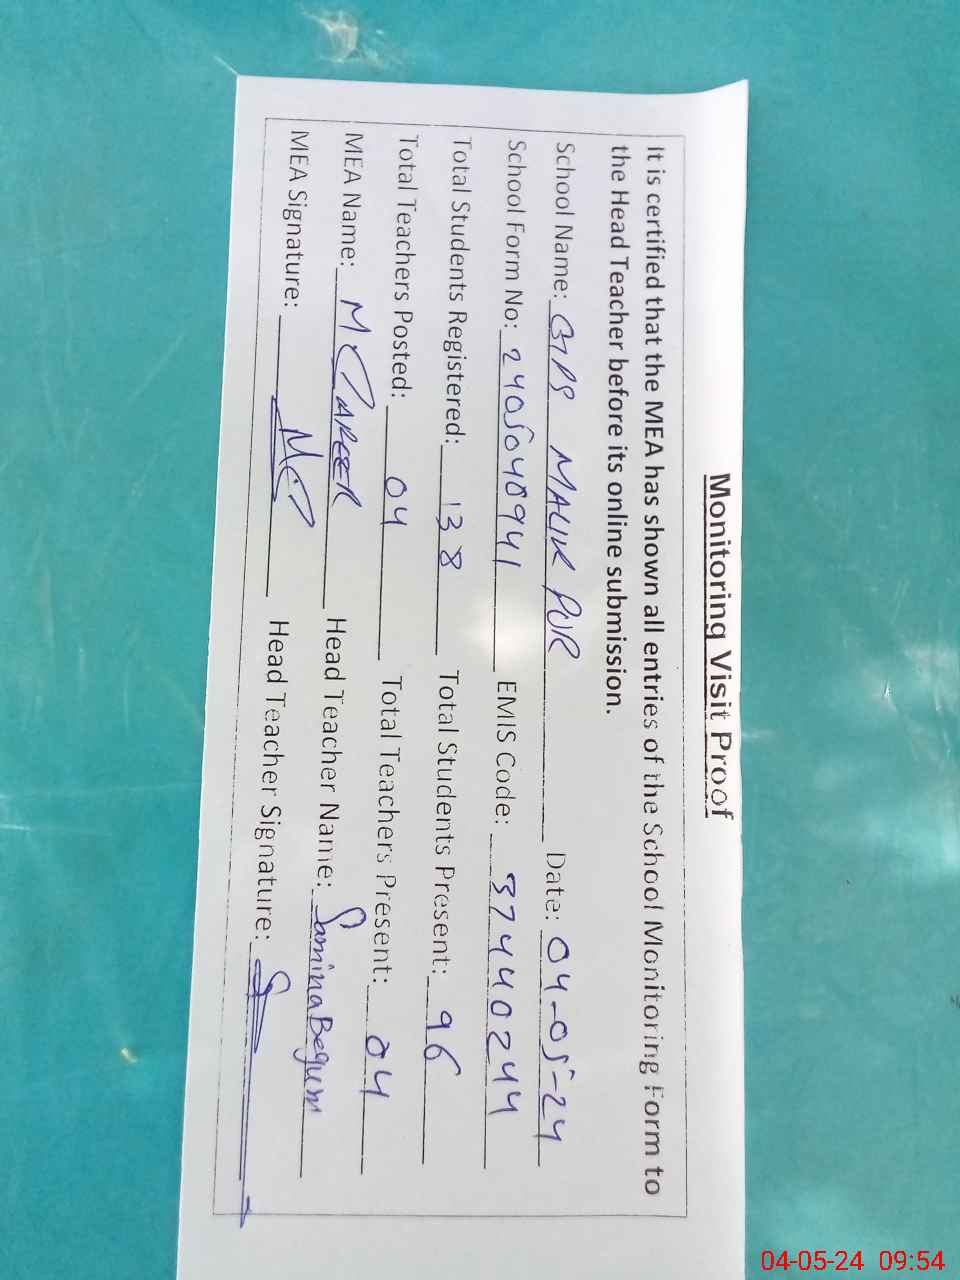 Monitoring Visit Proof
It is certified that the MEA has shown all entries of the School Monitoring Form to
the Head Teacher before its online submission.
School Name: GPS MALIK PUR Date: 04-05-24
School Form No: 2405040941 EMIS Code: 37440244
Total Students Registered: 138 Total Students Present: 96
Total Teachers Posted: 04 Total Teachers Present: 04
MEA Name: Head Teacher Name: Samina Begum
MEA Signature: Head Teacher Signature:
04-05-24 09:54